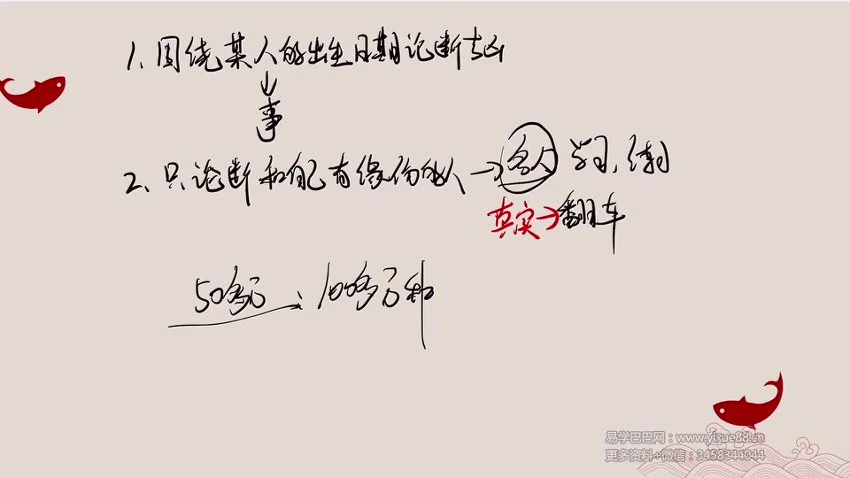 1、围绕某人的出生日期论断吉凶
↓
事
2、只论断和自己有缘份的人→名人 学习,
真实→翻车
50多万、100多万种
易学巴巴网:www.yixue88.cn
更多资料+微信:3458344044